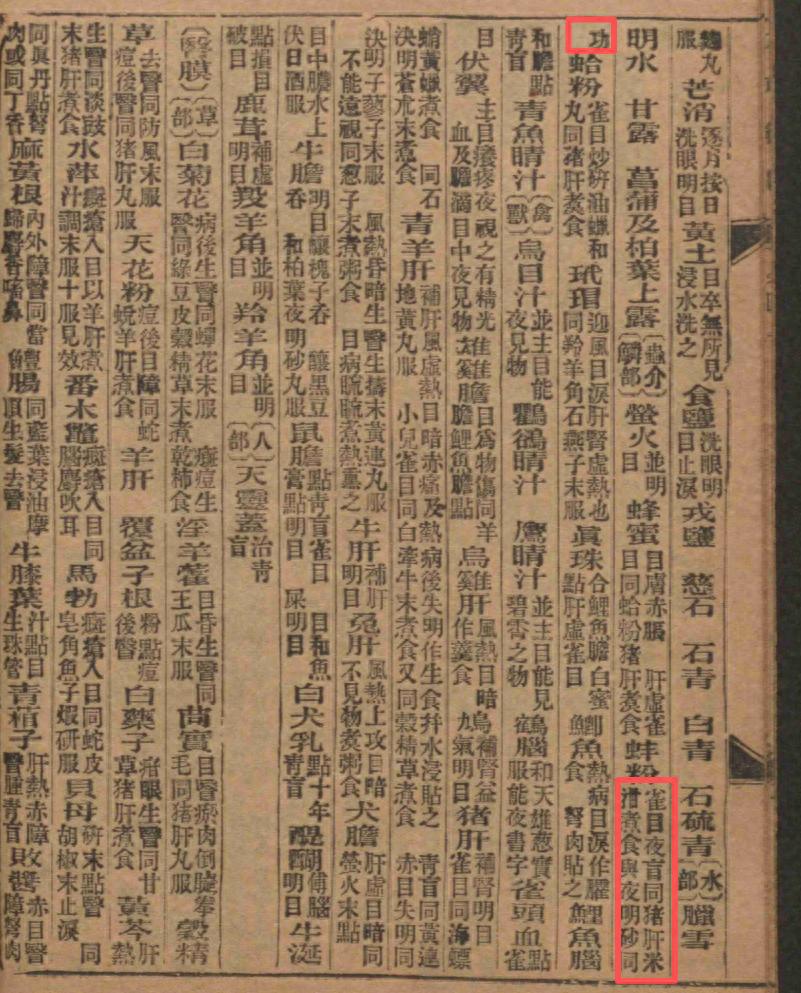 麴丸服 芒消逐月按日洗眼明目 黃土目卒無所見浸水洗之 食鹽洗眼明目止淚 戎鹽 慈石 石青 白青 石硫青〔水部〕臘雪
明水 甘露 菖蒲及柏葉上露〔蟲介鱗部〕螢火並明目 蜂蜜目膚赤脹 肝虛雀目同蛤粉猪肝煮食 蚌粉雀目夜盲同猪肝米泔煮食與夜明砂同
功 蛤粉雀目炒研油蠟和丸同猪肝煮食 玳瑁迎風目淚肝腎虛熱也同羚羊角石燕子末服 眞珠合鯉魚膽白蜜點肝虛雀目 鯽魚熱病目淚作臛食 弩肉貼之 鯉魚腦
和膽點青盲 青魚睛汁〔禽獸〕烏目汁並主目能夜見物 鸜鵒睛汁 鷹睛汁並主目能見碧霄之物 鶴腦和天雄葱實服能夜書字 雀頭血點雀
目 伏翼主目癢疼夜視之有精光血及膽滴目中夜見物 雄雞膽目爲物傷同羊膽鯉魚膽點 烏雞肝風熱目暗作羹食 鳩補腎益氣明目 猪肝補腎明目雀目同海螵
蛸黃蠟煮食 同石決明蒼朮末煮食 青羊肝補肝風虛熱目暗赤痛及熱病後失明作生食幷水浸貼之 青盲同黃連地黃丸服 小兒雀目同白牽牛末煮食又同穀精草煮食 赤目失明同
決明子蓼子末服 風熱昏暗生醫生擣末黃連丸服 不能遠視同葱子末煮粥食 目病䀮䀮煮熱熏之 牛肝補肝明目 兔肝風熱上攻目暗不見物煮粥食 犬膽肝虛目暗同螢火末點
目中膿水上伏日酒服 牛膽明目釀槐子吞 釀黑豆吞 和柏葉夜明砂丸服 鼠膽點青盲雀目 目和魚膏點明目 屎明目 白犬乳點十年青盲 醍醐傅腦明目 牛涎
點損目破目 鹿茸補虛明目 羖羊角並明目 羚羊角並明目〔人部〕天靈蓋治青盲
〔醫膜〕〔草部〕白菊花病後生醫同蟬花末服 癍痘生醫同綠豆皮穀精草末煮乾柿食 淫羊藿目昏生醫同王瓜末服 茼實目醫瘀肉倒睫拳毛同猪肝丸服 穀精
草去醫同防風末服 痘後醫同猪肝丸服 天花粉痘後目障同蛇蛻羊肝煮食 羊肝 覆盆子根粉點痘後醫 白藥子疳眼生醫同甘草猪肝煮食 黃芩肝熱
生醫同淡豉末猪肝煮食 水萍癍瘡入目以羊肝煮汁調末服十服見效 番木鱉癍瘡入目同腦麝吹耳 馬勃癍瘡入目同蛇皮皂角魚子蝦研服 貝母研末點醫 同胡椒末止淚
同與丹點弩肉或同丁香 麻黃根內外障醫同當歸麝香㗜鼻 魚腸同藍葉浸油摩頂生髮去醫 牛膝葉汁點目生珠管 青葙子肝熱赤障醫腫青盲 敗醬赤目醫障弩肉